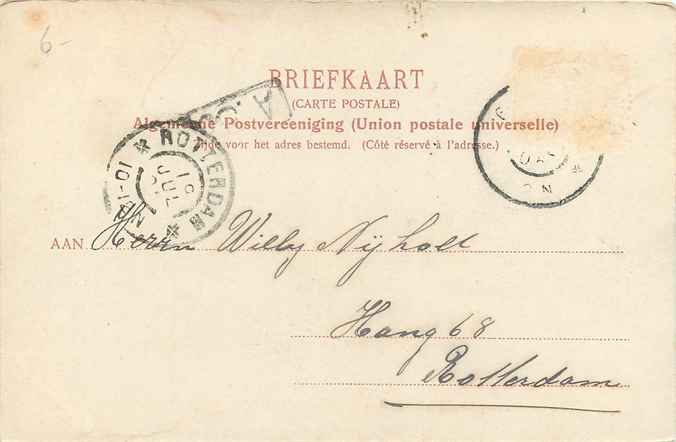 6-
BRIEFKAART
(CARTE POSTALE)
Algemeene Postvereeniging (Union postale universelle)
Zijde voor het adres bestemd. (Côté réservé à l'adresse.)
ROTTERDAM
10-11
JUL
01
A.
AAN Herrn Willy Nijholt
Hang 68
Rotterdam